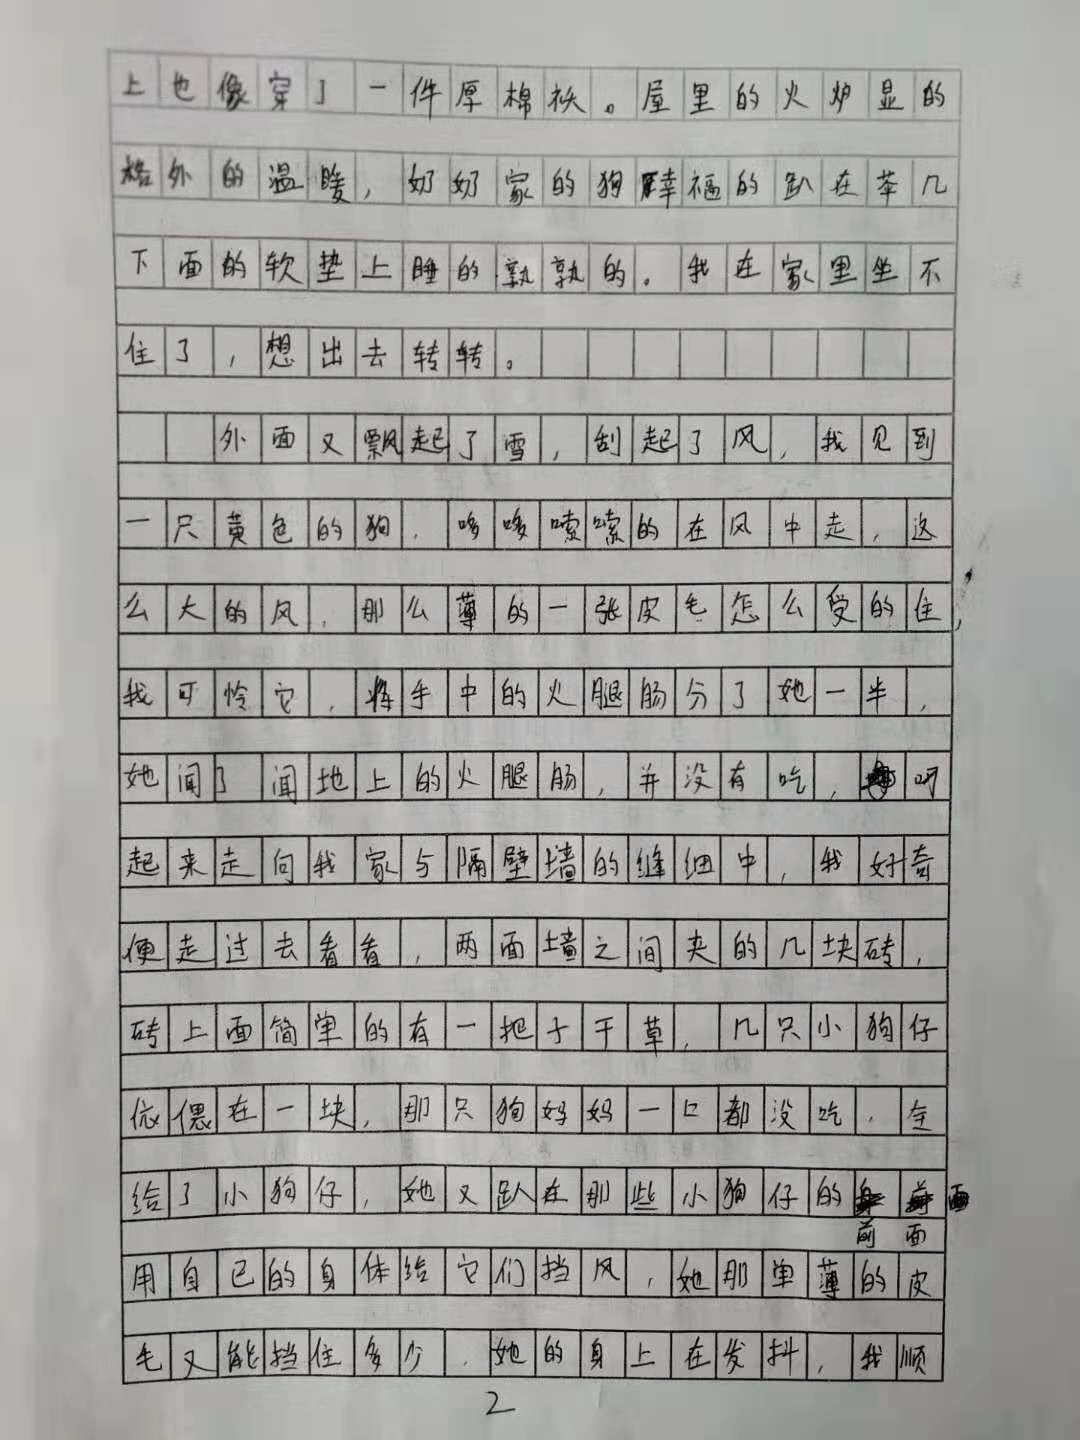 上也像穿了一件厚棉袄。屋里的火炉显的
格外的温暖，奶奶家的狗幸福的趴在茶几
下面的软垫上睡的孰孰的。我在家里坐不
住了，想出去转转。
外面又飘起了雪，刮起了风，我见到
一尺黄色的狗，哆哆嗦嗦的在风中走，这
么大的风，那么薄的一张皮毛怎么受的住，
我可怜它，将手中的火腿肠分了她一半，
她闻了闻地上的火腿肠，并没有吃，叼
起来走向我家与隔壁墙的缝细中，我好奇
便走过去看看，两面墙之间夹的几块砖，
砖上面简单的有一把子干草，几只小狗仔
依偎在一块，那只狗妈妈一口都没吃，全
给了小狗仔，她又趴在那些小狗仔的
前面
用自己的身体给它们挡风，她那单薄的皮
毛又能挡住多少，她的身上在发抖，我顺
2